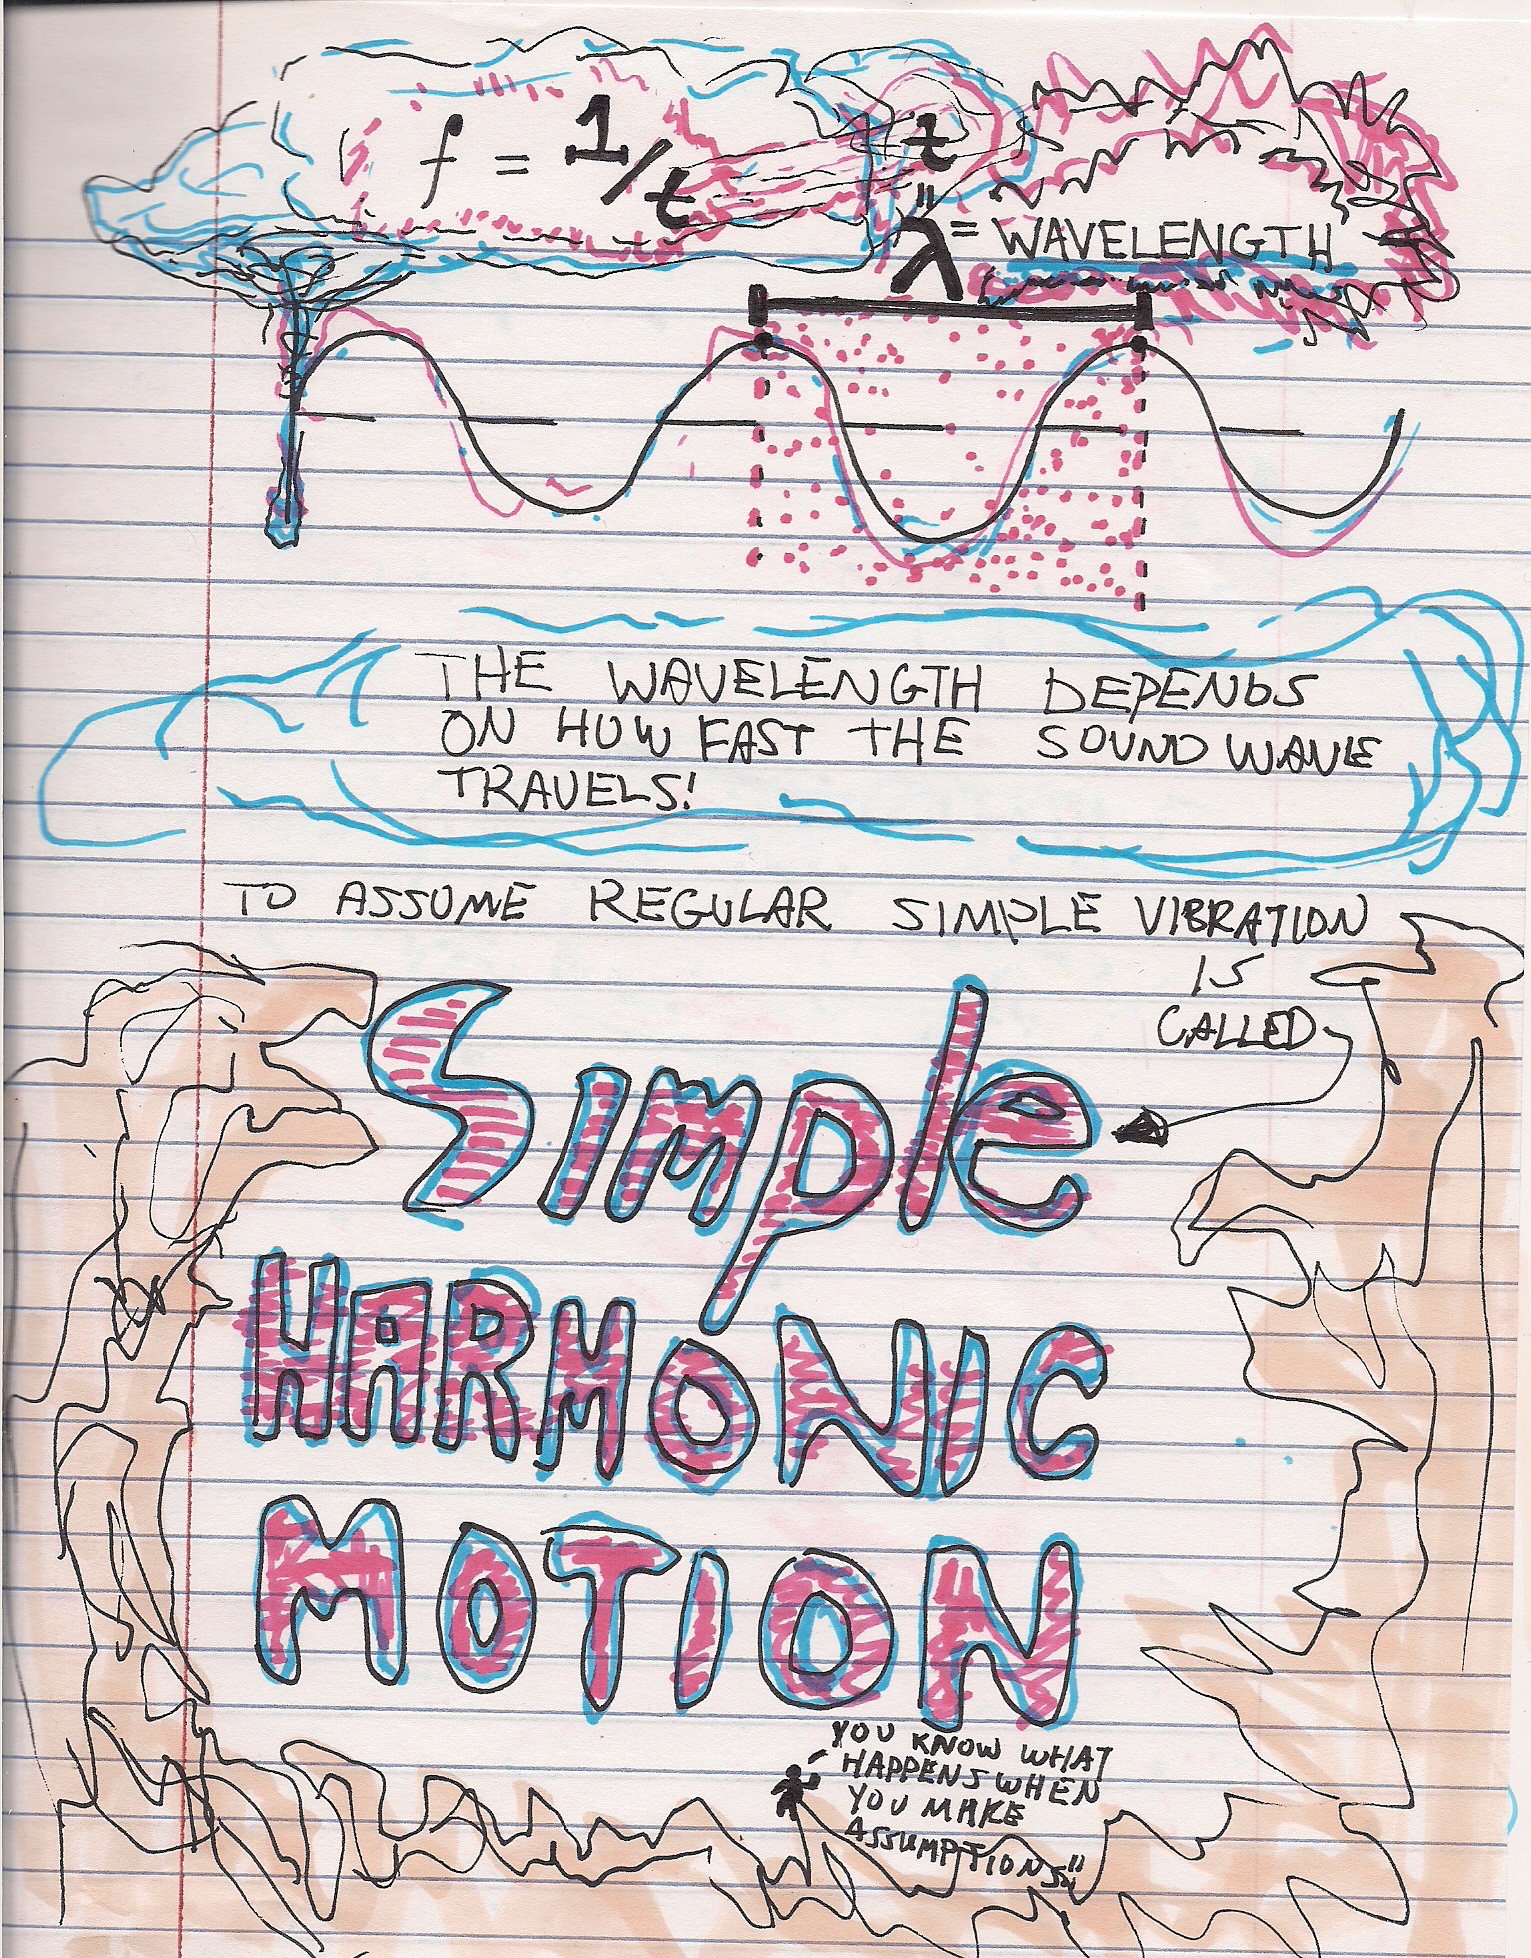 f = 1/t
t
"
λ = WAVELENGTH
THE WAVELENGTH DEPENDS
ON HOW FAST THE SOUND WAVE
TRAVELS!
TO ASSUME REGULAR SIMPLE VIBRATION
IS
CALLED
Simple
HARMONIC
MOTION
YOU KNOW WHAT
HAPPENS WHEN
YOU MAKE
ASSUMPTIONS"